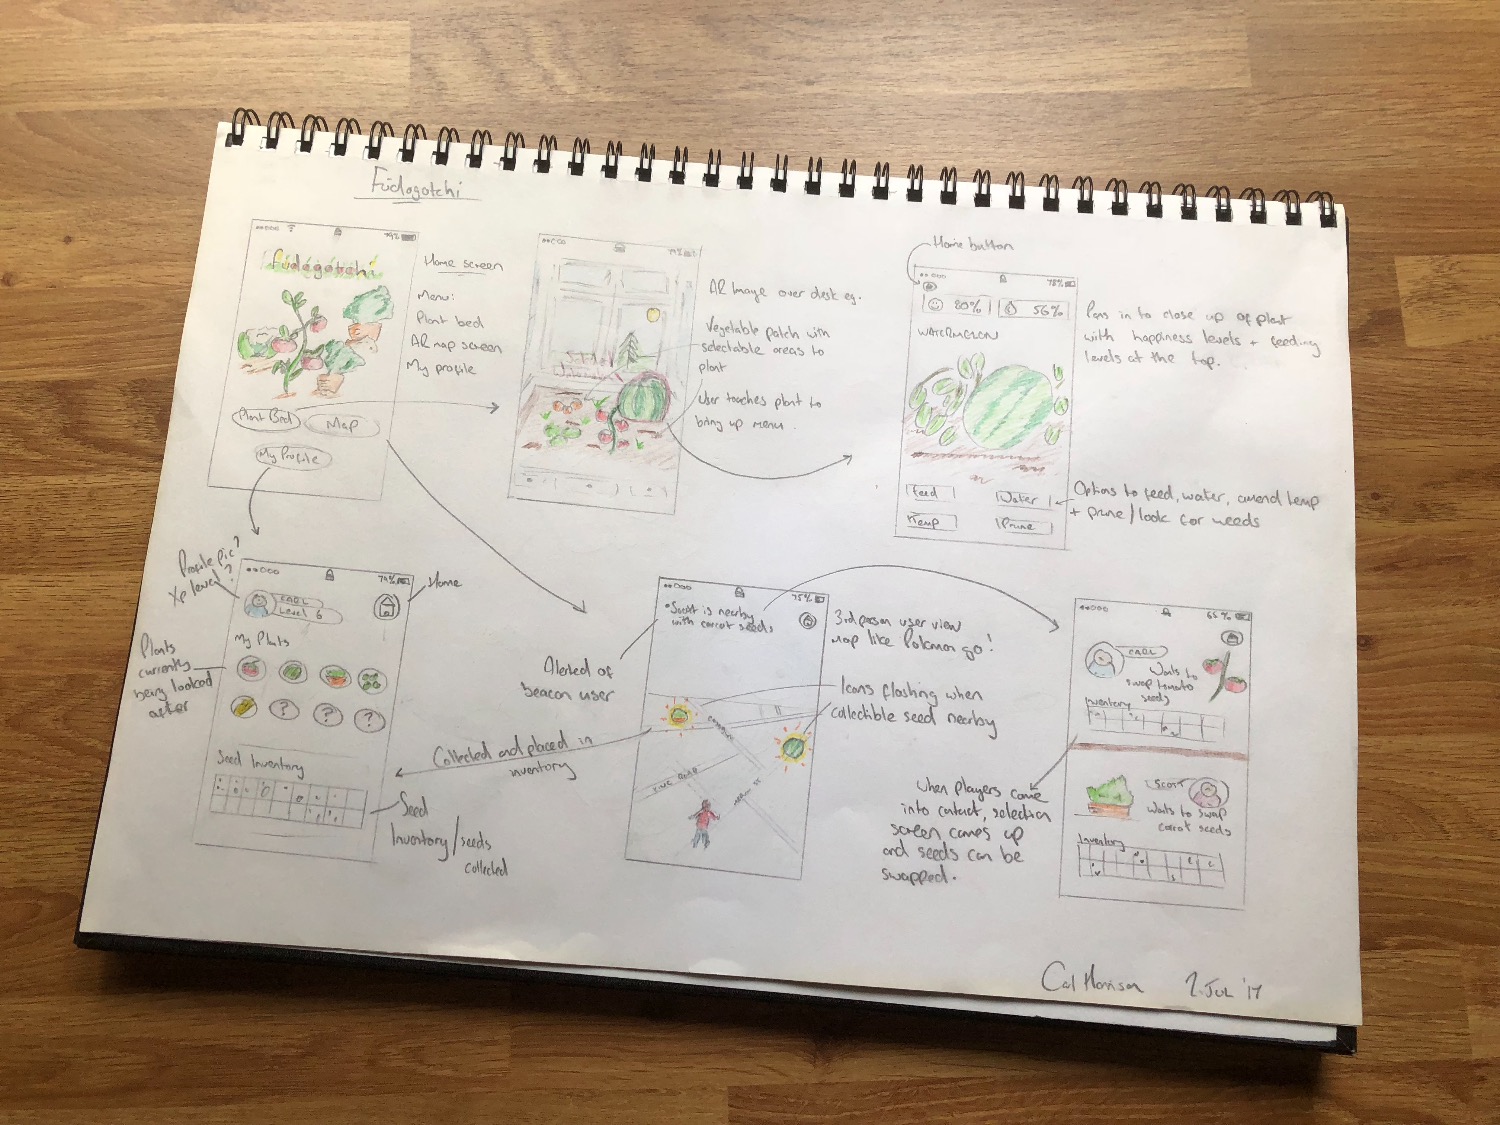 Fudogotchi
79%
Fudogotchi
Plant Bed
Map
My Profile
Home screen
Menu:
Plant bed
AR map screen
My profile
AR Image over desk eg.
Vegetable patch with
selectable areas to
plant
User touches plant to
bring up menu.
Home button
78%
80%
56%
WATERMELON
Feed
Water
Temp
Prune
Pans in to close up of plant
with happiness levels + feeding
levels at the top.
Options to feed, water, amend temp
+ prune/look for weeds
Profile pic?
Xp level?
Home
CARL
Level 6
My Plants
Plants
currently
being looked
after
Seed Inventory
Seed
Inventory/seeds
collected
75%
•Scott is nearby
with carrot seeds
Alerted of
beacon user
Collected and placed in
inventory
3rd person user view
Map like Pokmon go!
Icons flashing when
collectible seed nearby
65%
CARL
Wants to
swap tomato
seeds
Inventory
SCOTT
Wants to swap
carrot seeds
Inventory
When Players come
into contact, selection
screen comes up
and seeds can be
swapped.
Cal Harrison
2 JUL '17